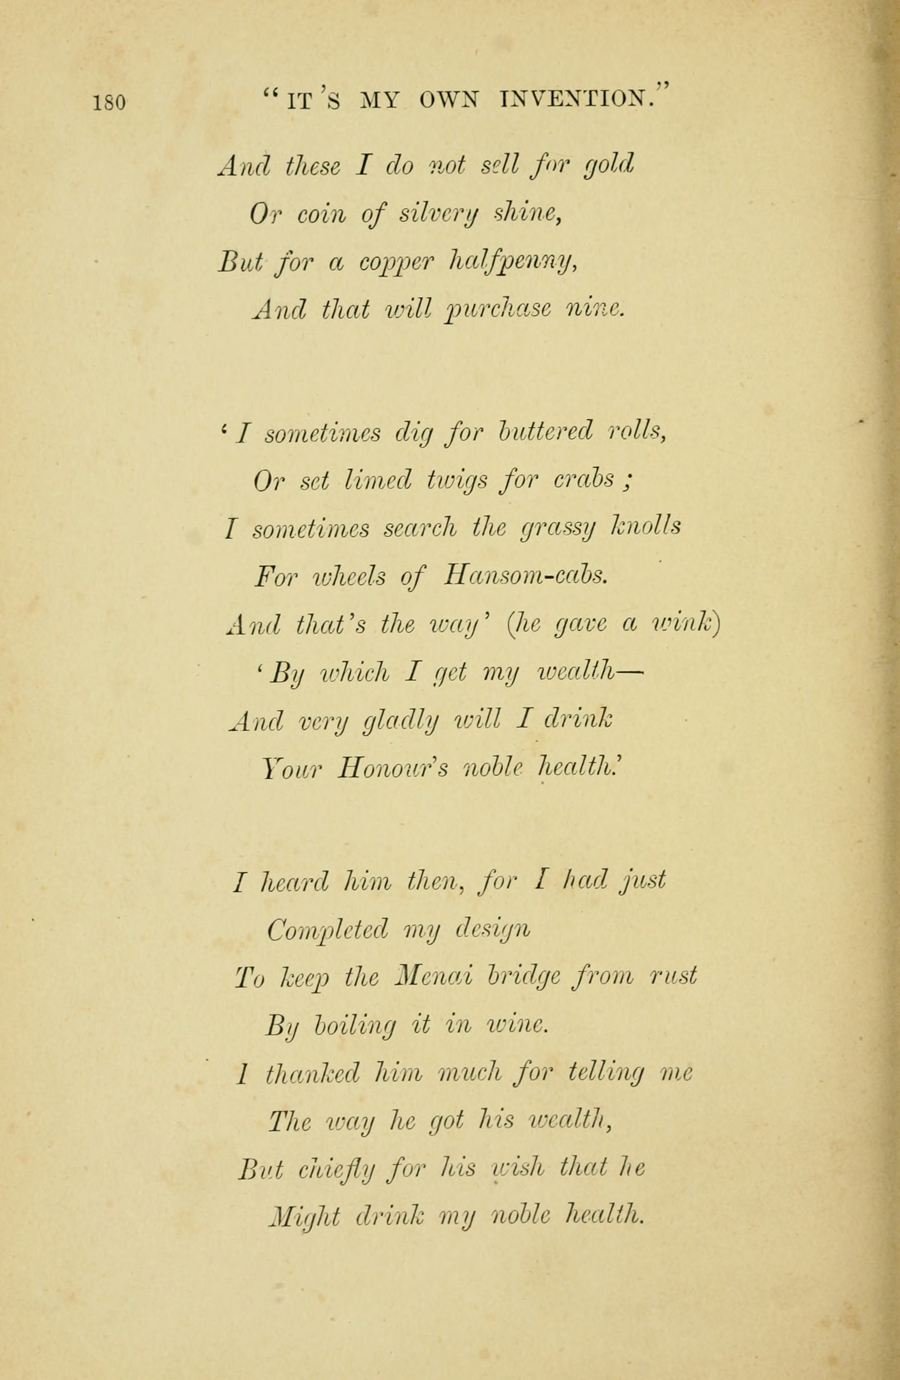 180 "IT'S MY OWN INVENTION."
And these I do not sell for gold
Or coin of silvery shine,
But for a copper halfpenny,
And that will purchase nine.
'I sometimes dig for buttered rolls,
Or set limed twigs for crabs;
I sometimes search the grassy knolls
For wheels of Hansom-cabs.
And that's the way' (he gave a wink)
'By which I get my wealth—
And very gladly will I drink
Your Honour's noble health.'
I heard him then, for I had just
Completed my design
To keep the Menai bridge from rust
By boiling it in wine.
I thanked him much for telling me
The way he got his wealth,
But chiefly for his wish that he
Might drink my noble health.